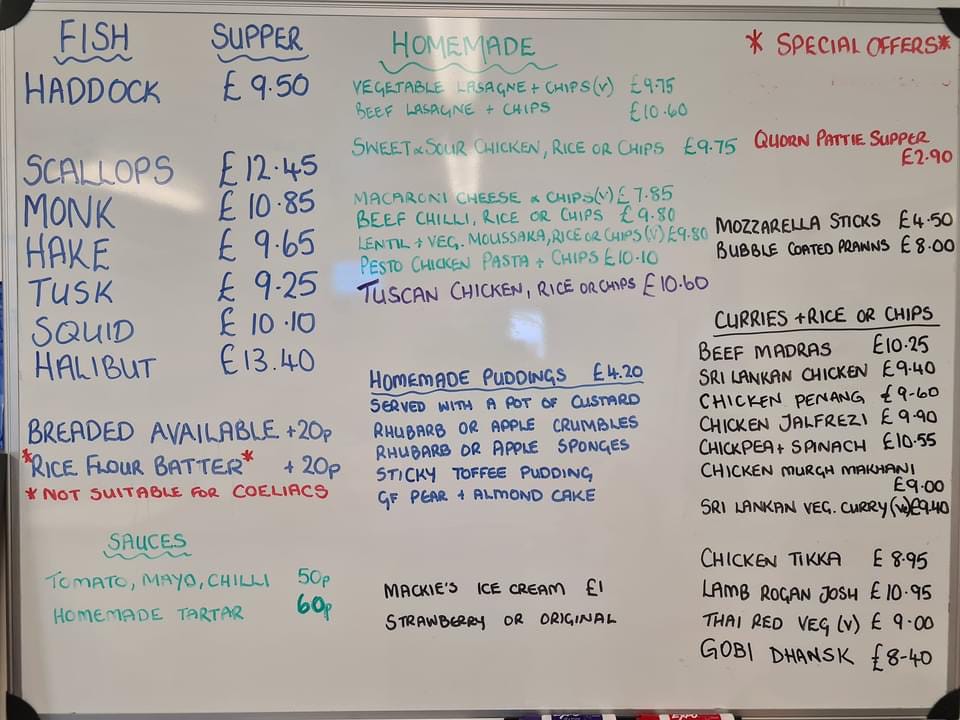 FISH SUPPER
HADDOCK £9.50
SCALLOPS £12.45
MONK £10.85
HAKE £9.65
TUSK £9.25
SQUID £10.10
HALIBUT £13.40
BREADED AVAILABLE +20p
*RICE FLOUR BATTER* +20p
*NOT SUITABLE FOR COELIACS
SAUCES
TOMATO, MAYO, CHILLI 50p
HOMEMADE TARTAR 60p
HOMEMADE
VEGETABLE LASAGNE + CHIPS (V) £9.75
BEEF LASAGNE + CHIPS £10.60
SWEET & SOUR CHICKEN, RICE OR CHIPS £9.75
MACARONI CHEESE & CHIPS (V) £7.85
BEEF CHILLI, RICE OR CHIPS £9.80
LENTIL + VEG. MOUSSAKA, RICE OR CHIPS (V) £9.80
PESTO CHICKEN PASTA + CHIPS £10.10
TUSCAN CHICKEN, RICE OR CHIPS £10.60
HOMEMADE PUDDINGS £4.20
SERVED WITH A POT OF CUSTARD
RHUBARB OR APPLE CRUMBLES
RHUBARB OR APPLE SPONGES
STICKY TOFFEE PUDDING
GF PEAR + ALMOND CAKE
MACKIE'S ICE CREAM £1
STRAWBERRY OR ORIGINAL
* SPECIAL OFFERS *
QUORN PATTIE SUPPER
£2.90
MOZZARELLA STICKS £4.50
BUBBLE COATED PRAWNS £8.00
CURRIES + RICE OR CHIPS
BEEF MADRAS £10.25
SRI LANKAN CHICKEN £9.40
CHICKEN PENANG £9-60
CHICKEN JALFREZI £9.90
CHICKPEA + SPINACH £10.55
CHICKEN MURGH MAKHANI
£9.00
SRI LANKAN VEG. CURRY (ve) £9.40
CHICKEN TIKKA £8.95
LAMB ROGAN JOSH £10.95
THAI RED VEG (V) £9.00
GOBI DHANSK £8-40